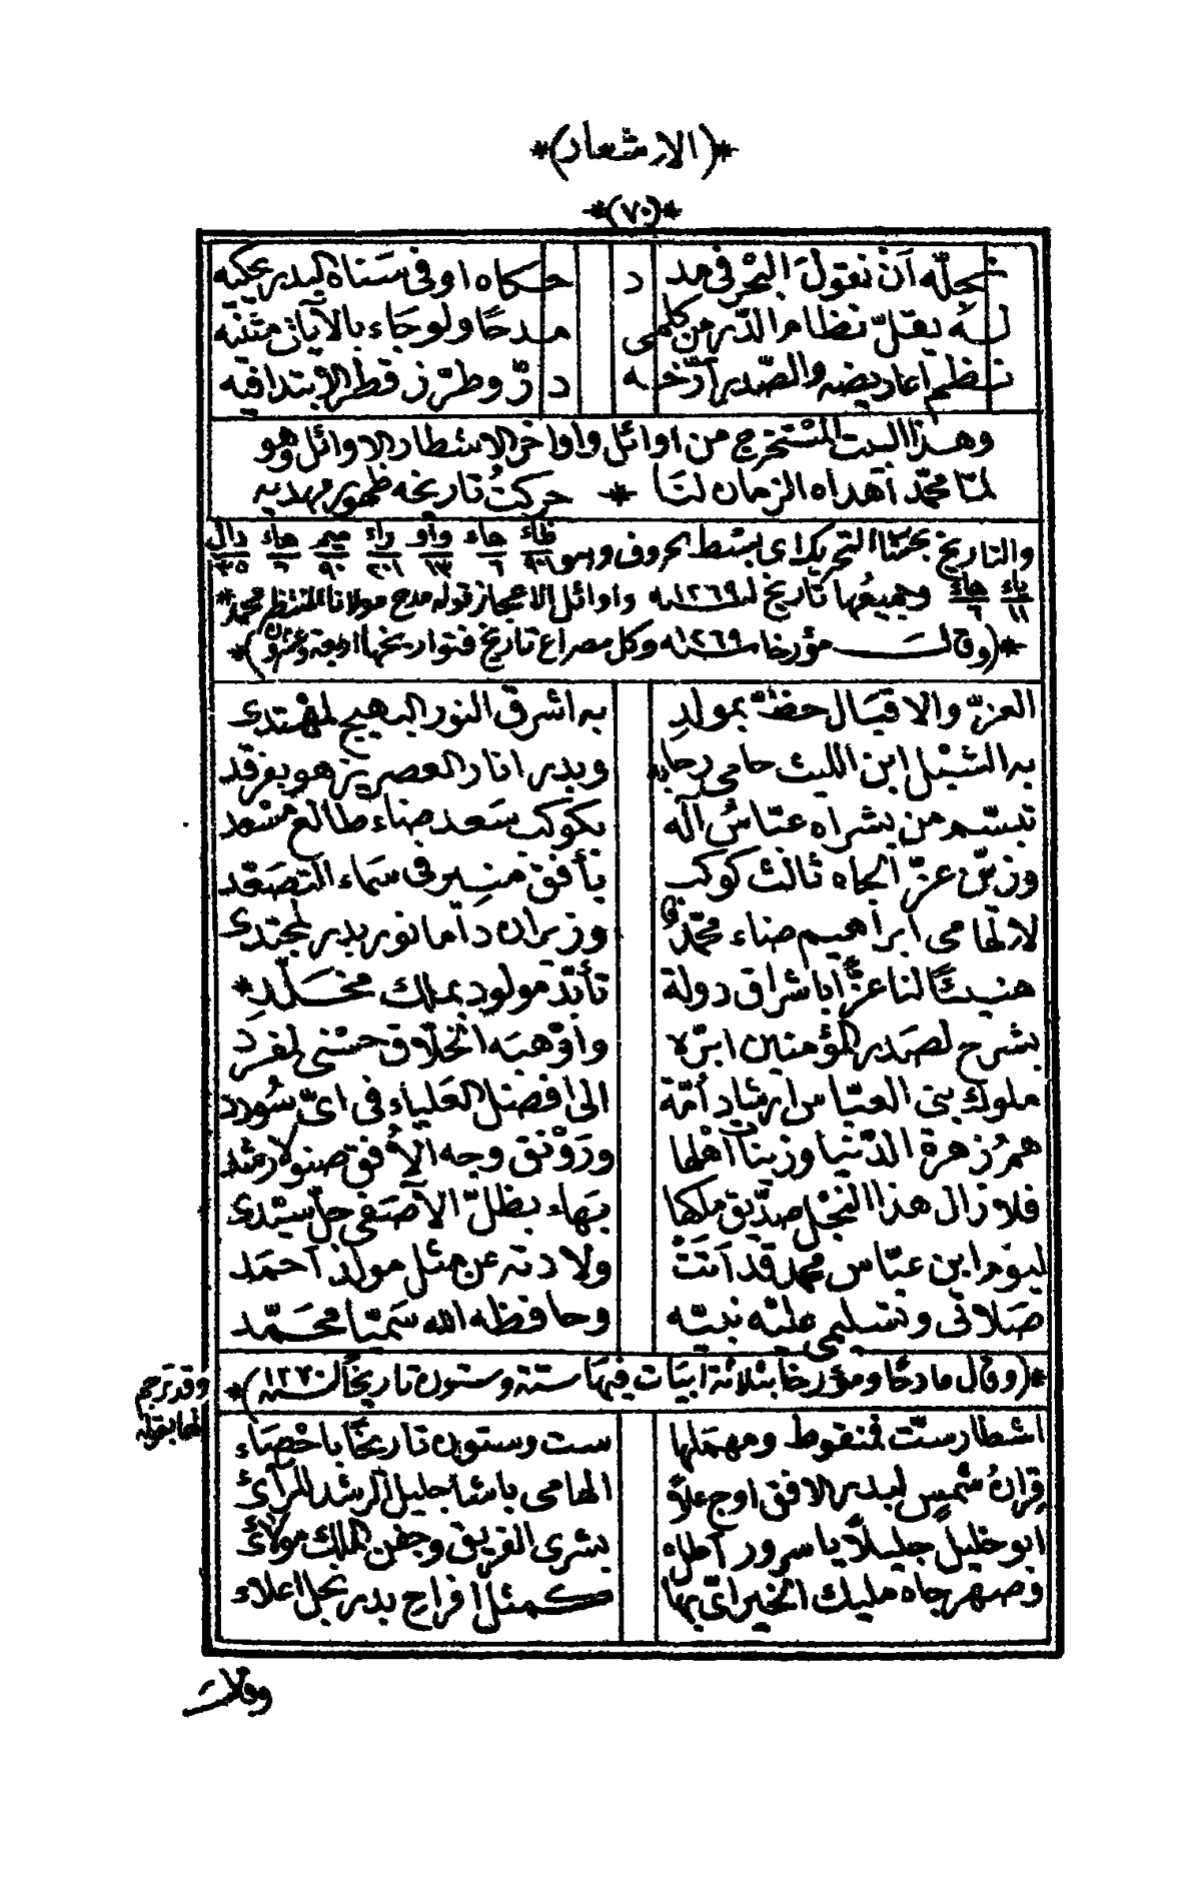 *(الاشعار)*
*(٧٠)*
نجله ان نقول البحر فى مد د حكاه او فى سناه البدر يحكيه
له يقل نظام الدر من كلمى مدحا ولو جاء بالآيات متنه
نظم اعاريضه والصدر ارخه در وطرز قطر الابتدا فيه
وهذا البيت المستخرج من اوائل واواخر الاشطار الاوائل وهو
لمّا محمّد اهداه الزمان لنا * حركت تاريخه ظهور مهديه
والتاريخ بحسنا التحريك اى بسط حروف وهو ظاء ٩٠١ هاء ٦ واو ١٣ راء ٢٠١ ميم ٩٠ هاء ٦ دال ٣٥
ياء ١١ هاء ٦ وجميعها تاريخ لسنة ١٢٦٩ واوائل الاعجاز قوله مدح مولانا المنتظر محمد *
*(وقال مؤرخا سنة ١٢٦٩ وكل مصراع تاريخ فتواريخها اربعة وعشرون)*
العزّ والاقبال حظّ بمولد به اشرق النور البهيج لمهتدى
به الشبل ابن الليث حامى رحابه وبدر انار العصر يزهو بفرقد
تبسّم من بشراه عبّاس آله بكوكب سعد ضاء طالع مسعد
وزيّن عزّ الجاه ثالث كوكب بأفق منير فى سماء التصعّد
لالهامى ابراهيم ضاء محمّد وزيران داما نور بدر لمجتدى
هنيئًا لنا عزًّا باشراق دولة تأبّد مولود بملك مخلّد *
بشرح لصدر المؤمنين ابرّه وأوهبه الخلّاق حسنى لمفرد
ملوك بنى العبّاس ارشاد أمّة الى افضل العلياء فى اىّ سودد
هم زهرة الدّنيا وزينات اهلها ورونق وجه الأفق صنو لارشد
فلا زال هذا النجل صدّيق ملكها بهاء بظلّ الآصفى جلّ سيّدى
ليوم ابن عبّاس محمد قد اتت ولادته عن مثل مولد احمد
صلاتى وتسليمى عليه نبيّه وحافظه الله سمّيا محمّد
*(وقال مادحًا ومؤرخا بثلاثة ابيات فيها ستة وستون تاريخًا لسنة ١٢٧٠)*
وقد ترجم
لها بقوله
اشطار ستّ فمنقوط ومهملها ست وستون تاريخًا باحصاء
قران شمس لبدر الافق اوج علا الهامى باشا جليل الرشد المرآئى
ابو خليل جليلا يا سرور اطله بشرى الفريق وجفن الملك مولائى
وصهر جاه مليك الخير اىّ بها كمثل افراح بدر نجل اعلاء
وقال